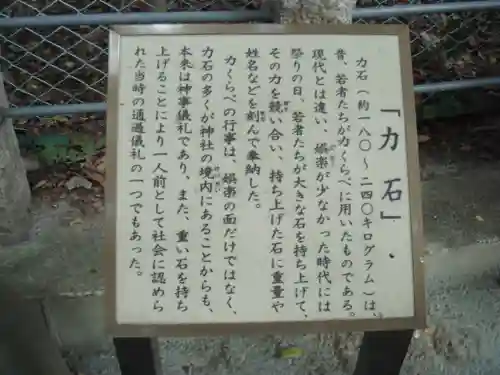 「力石」
力石（約一八〇～二四〇キログラム）は、
昔、若者たちが力くらべに用いたものである。
現代とは違い、娯楽が少なかった時代には
祭りの日、若者たちが大きな石を持ち上げて、
その力を競い合い、持ち上げた石に重量や
姓名などを刻んで奉納した。
力くらべの行事は、娯楽の面だけではなく、
力石の多くが神社の境内にあることからも、
本来は神事儀礼であり、また、重い石を持ち
上げることにより一人前として社会に認めら
れた当時の通過儀礼の一つでもあった。